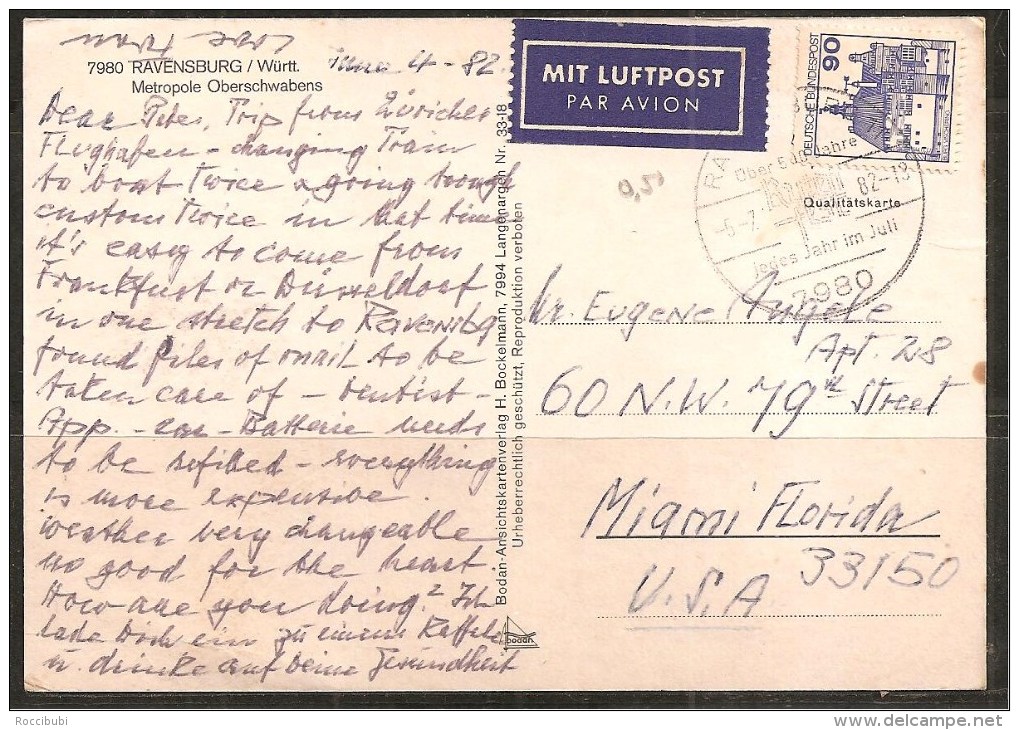 7980 RAVENSBURG / Württ.
4 - 82.
Metropole Oberschwabens
Dear Peter, Trip from Züricher
Flughafen - changing Train
to boat Twice & going trough
custom Twice in that time
it's easy to come from
Frankfurt or Düsseldorf
in one stretch to Ravensbg
found piles of mail to be
taken care of - Dentist -
App. - car - Batterie needs
to be refilled - everything
is more expensive.
weather very changeable
no good for the heart.
How are you doing? Ich
lade Dich ein zu einem Kaffee
u. drinke auf Deine Gesundheit
Bodan-Ansichtskartenverlag H. Bockelmann, 7994 Langenargen Nr. 33-18
Urheberrechtlich geschützt, Reproduktion verboten
bodan
MIT LUFTPOST
PAR AVION
DEUTSCHE BUNDESPOST
90
0,51
Über 500 Jahre
82-18
Qualitätskarte
-5-7.
Jedes Jahr im Juli
7980
Mr. Eugene Angele
Apt. 28
60 N.W. 79th Street
Miami Florida
33150
U.S.A
Roccibubi
www.delcampe.net